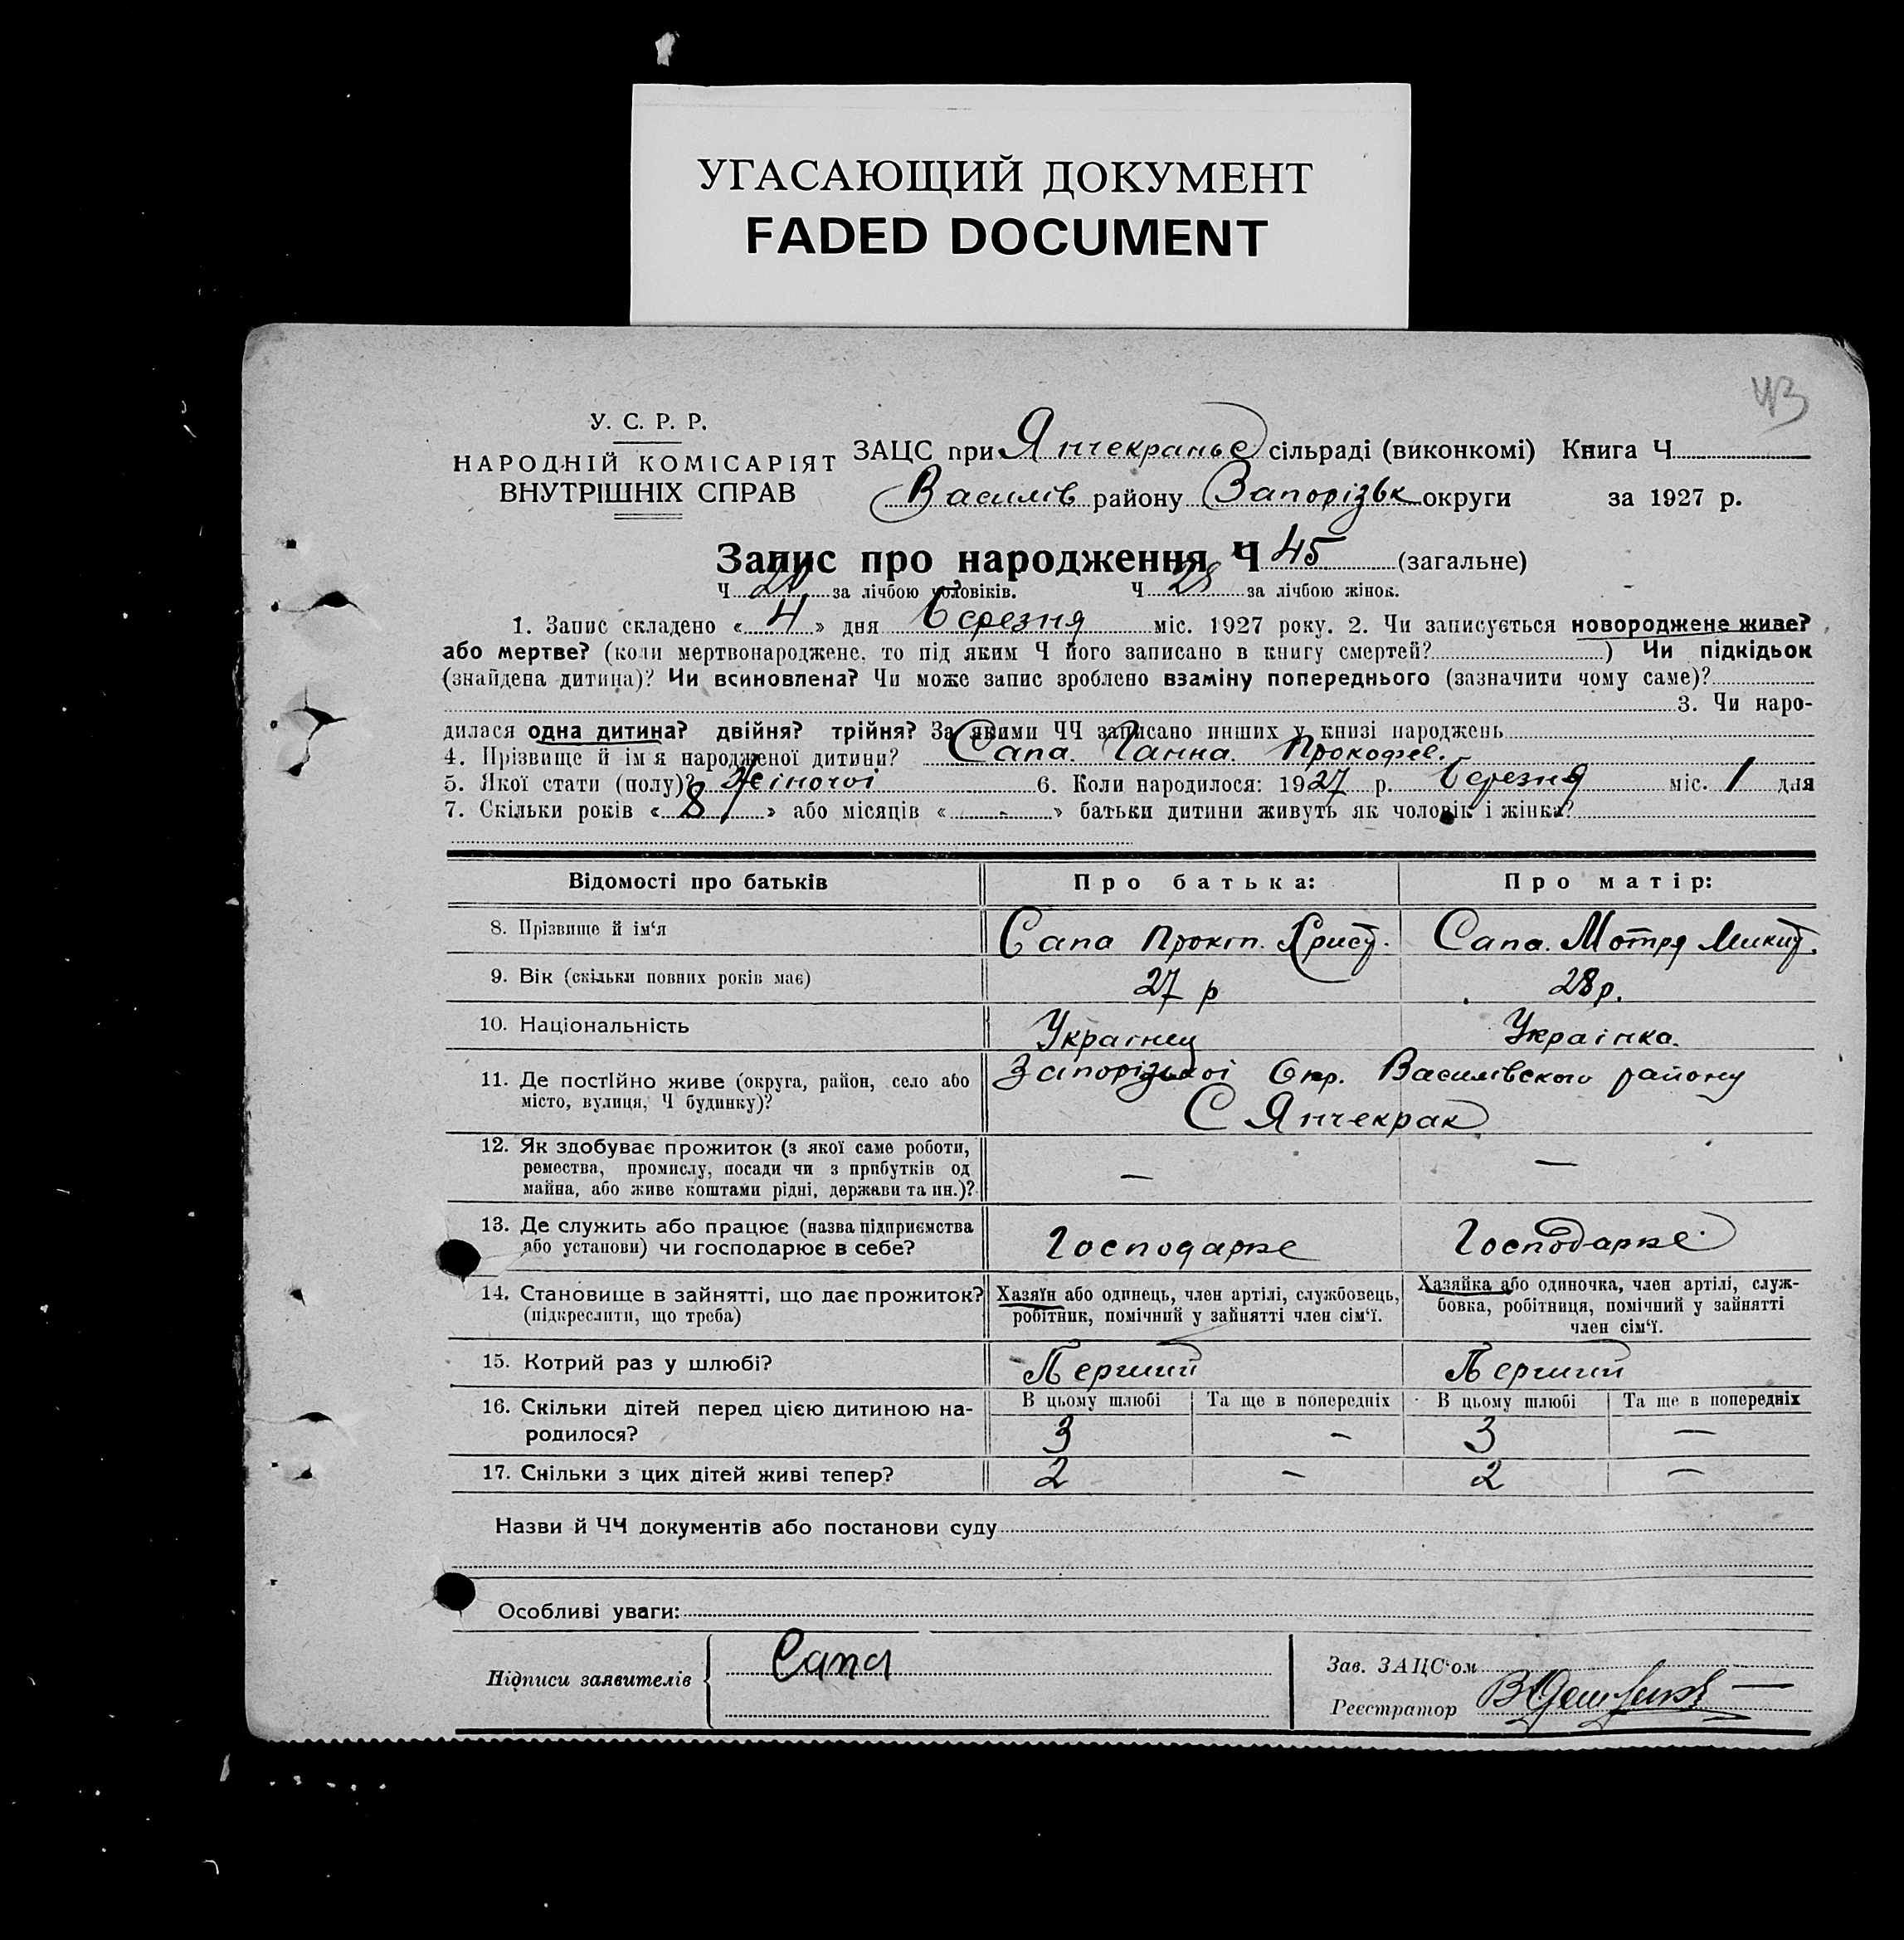 УГАСАЮЩИЙ ДОКУМЕНТ
FADED DOCUMENT
43
У. С. Р. Р.
НАРОДНІЙ КОМІСАРІЯТ
ВНУТРІШНІХ СПРАВ
ЗАЦС при Янчекраньс сільраді (виконкомі) Книга Ч
Василів району Запорізьк округи за 1927 р.
Запис про народження Ч 45 (загальне)
Ч 20 за лічбою чоловіків. Ч 25 за лічбою жінок.
1. Запис складено « 4 » дня Березня міс. 1927 року. 2. Чи записується новороджене живе?
або мертве? (коли мертвонароджене, то під яким Ч його записано в книгу смертей? ) Чи підкідьок
(знайдена дитина)? Чи всиновлена? Чи може запис зроблено взаміну попереднього (зазначити чому саме)?
3. Чи наро-
дилася одна дитина? двійня? трійня? За якими ЧЧ записано инших у книзі народжень
4. Прізвище й ім я народженої дитини? Сапа. Ганна. Прокофев.
5. Якої стати (полу)? Жіночоі 6. Коли народилося: 1927 р. Березня міс. 1 дня
7. Скільки років « 8 » або місяців « - » батьки дитини живуть як чоловік і жінка?
Відомості про батьків Про батька: Про матір:
8. Прізвище й ім‘я Сапа Прокоп. Христ. Сапа. Мотря Микит.
9. Вік (скільки повних років має) 27 р 28 р.
10. Національність Украінец Украінка.
11. Де постійно живе (округа, район, село або Запорізькоі Окр. Василівского району
місто, вулиця, Ч будинку)? С Янчекрак
12. Як здобуває прожиток (з якої саме роботи,
ремества, промислу, посади чи з прибутків од — —
майна, або живе коштами рідні, держави та ин.)?
13. Де служить або працює (назва підприємства
або установи) чи господарює в себе? Господарює Господарює
14. Становище в зайнятті, що дає прожиток? Хазяїн або одинець, член артілі, службовець, Хазяйка або одиночка, член артілі, служ-
(підкреслити, що треба) робітник, помічний у зайнятті член сім‘ї. бовка, робітниця, помічний у зайнятті
член сім‘ї.
15. Котрий раз у шлюбі? Перший Перший
16. Скільки дітей перед цією дитиною на- В цьому шлюбі Та ще в попередніх В цьому шлюбі Та ще в попередніх
родилося? 3 - 3 —
17. Скільки з цих дітей живі тепер? 2 - 2 —
Назви й ЧЧ документів або постанови суду
Особливі уваги:
Підписи заявителів Сапа
Зав. ЗАЦС‘ом
Реєстратор